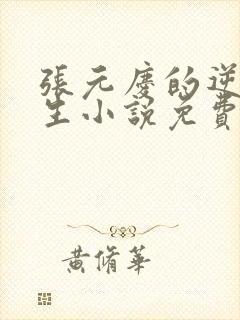 張元慶的逆
生小說免費
黃脩華